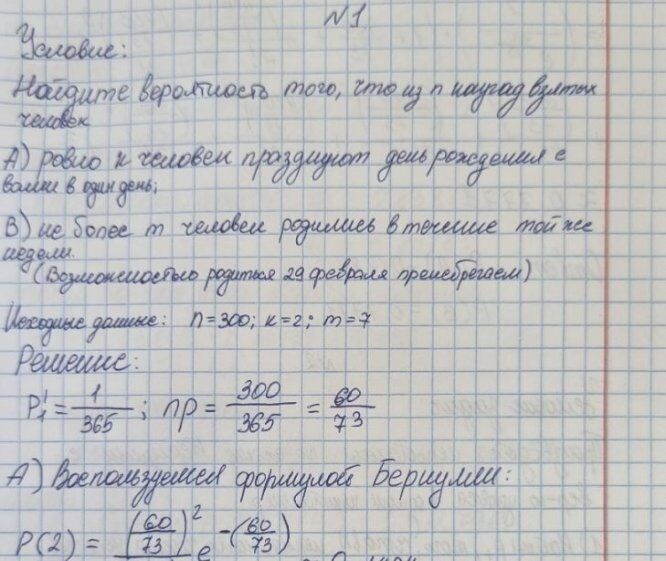 N 1
Условие:
Найдите вероятность того, что из n наугад взятых
человек
А) ровно к человек празднуют день рождения с
вами в один день;
В) не более m человек родились в течение той же
недели.
(Возможностью родиться 29 февраля пренебрегаем)
Исходные данные: n=300; к=2; m=7
Решение:
P₁¹ = 1/365 ; np = 300/365 = 60/73
А) Воспользуемся формулой Бернулли:
P(2) = (60/73)² e^-(60/73)